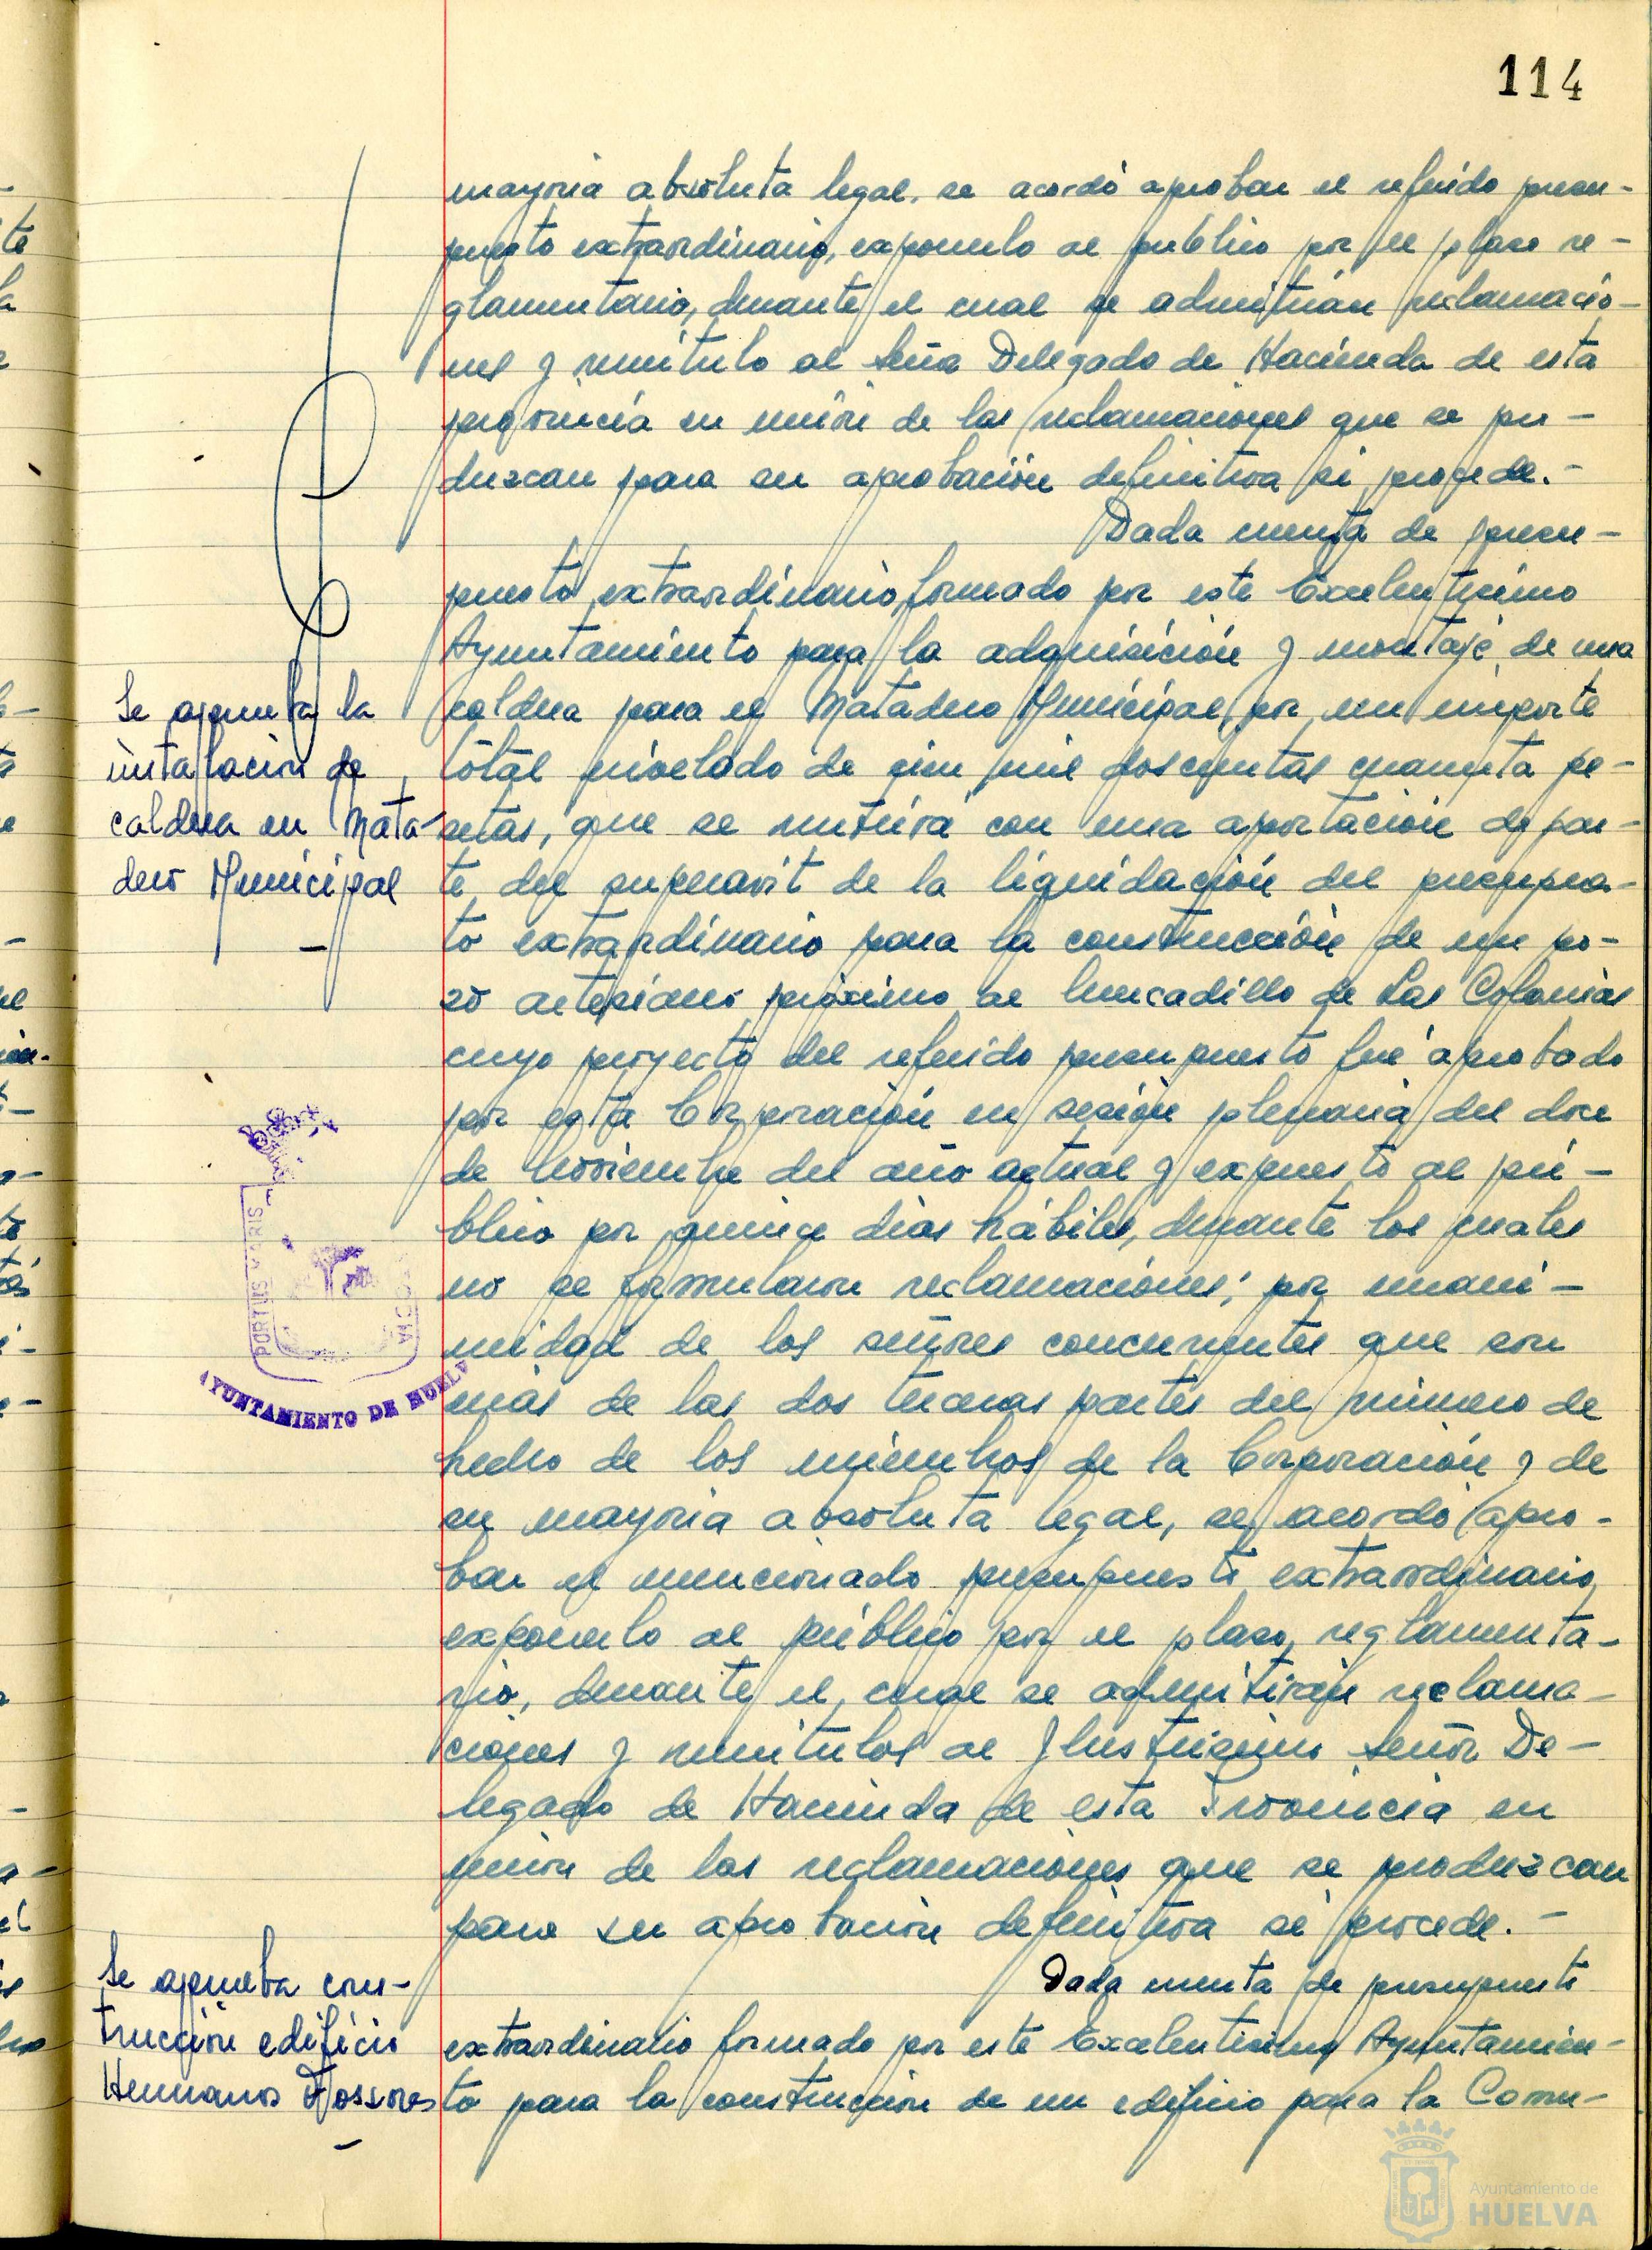 114
mayoria absoluta legal, se acordó aprobar el referido presu-
puesto extraordinario, exponerlo al publico por el plazo re-
glamentario, durante el cual se admitirán reclamacio-
nes y remitirlo al Señor Delegado de Hacienda de esta
provincia en unión de las reclamaciones que se pro-
duzcan para su aprobación definitiva si procede.-
Dada cuenta de presu-
puesto extraordinario formado por este Excelentisimo
Ayuntamiento para la adquisición y montaje de una
caldera para el Matadero Municipal, por un importe
total nivelado de cien mil doscientas cuarenta pe-
setas, que se nutrirá con una aportación de par-
te del superavit de la liquidación del presupues-
to extraordinario para la construcción de un po-
zo artesiano próximo al Mercadillo de Las Colonias
cuyo proyecto del referido presupuesto fué aprobado
por esta Corporación en sesión plenaria del doce
de Noviembre del año actual y expuesto al pú-
blico por quince dias hábiles, durante los cuales
no se formularon reclamaciones; por unani-
midad de los señores concurrentes que son
más de las dos terceras partes del número de
hecho de los miembros de la Corporación y de
su mayoria absoluta legal, se acordó apro-
bar el mencionado presupuesto extraordinario,
exponerlo al público por el plazo reglamenta-
rio, durante el cual se admitirán reclama-
ciones y remitirlos al Ilustrisimo Señor De-
legado de Hacienda de esta Provincia en
unión de las reclamaciones que se produzcan
para su aprobación definitiva si procede.-
Dada cuenta de presupuesto
extraordinario formado por este Excelentisimo Ayuntamien-
to para la construcción de un edificio para la Comu-
Se aprueba la
instalación de
caldera en Mata-
dero Municipal
-
PORTUS MARIS
AYUNTAMIENTO DE HUELV
Se aprueba cons-
trucción edificio
Hermanos Fossores
-
Ayuntamiento de
HUELVA